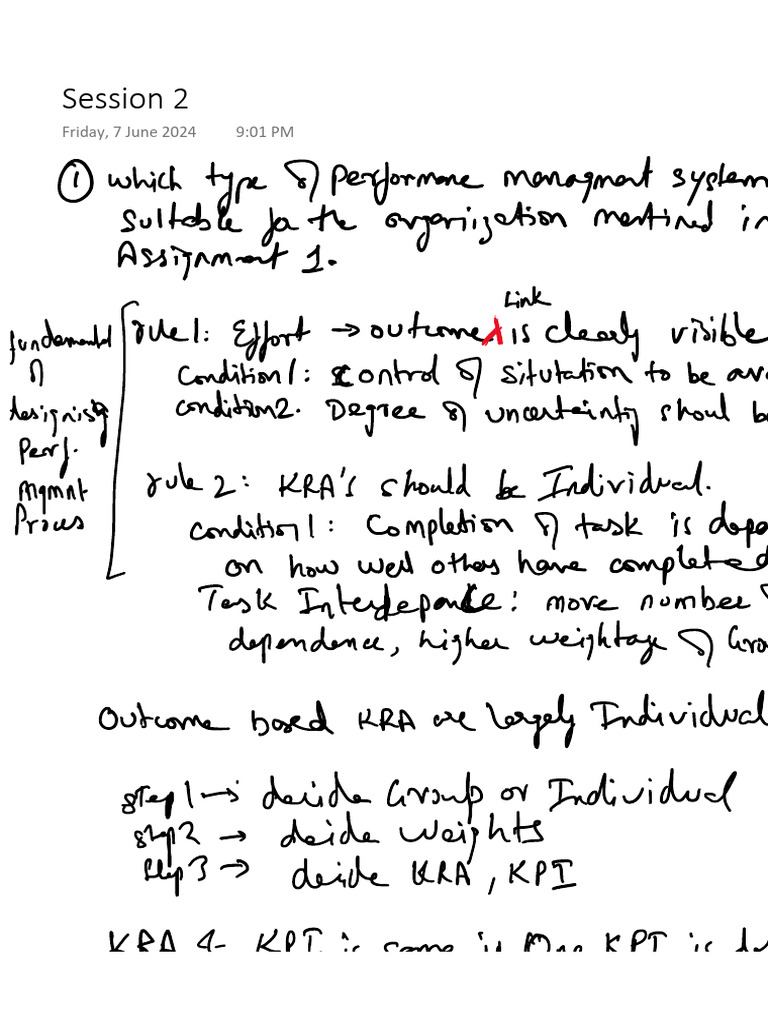 Session 2
Friday, 7 June 2024 9:01 PM
① which type of performane managment system
suitable for the orgarization mentined in
Assignment 1.
Link
rule1: Effort → outcome is clearly visible
Condition1: control of situtation to be ava
condition2. Degree of uncertainty shoul be
fundamental
of
designing
Perf.
Mgmnt
Proces
rule 2: KRA's should be Individual.
condition1: Completion of task is depe
on how well others have completed
Task Interdepence: more number
dependence, higher weightage of Gro
Outcome based KRA are largely Individual
step1 → decide Group or Individual
step2 → decide weights
step3 → decide KRA, KPI
KRA & KPI is same is One KPI is